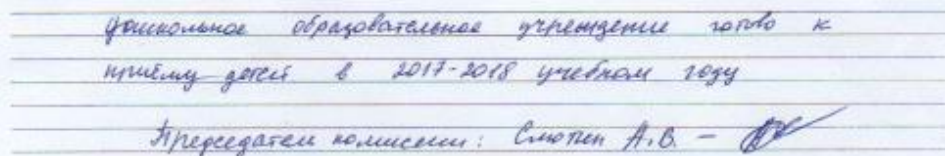 дошкольное образовательное учреждение готово к
приёму детей в 2017-2018 учебном году
Председатель комиссии: А.В. -